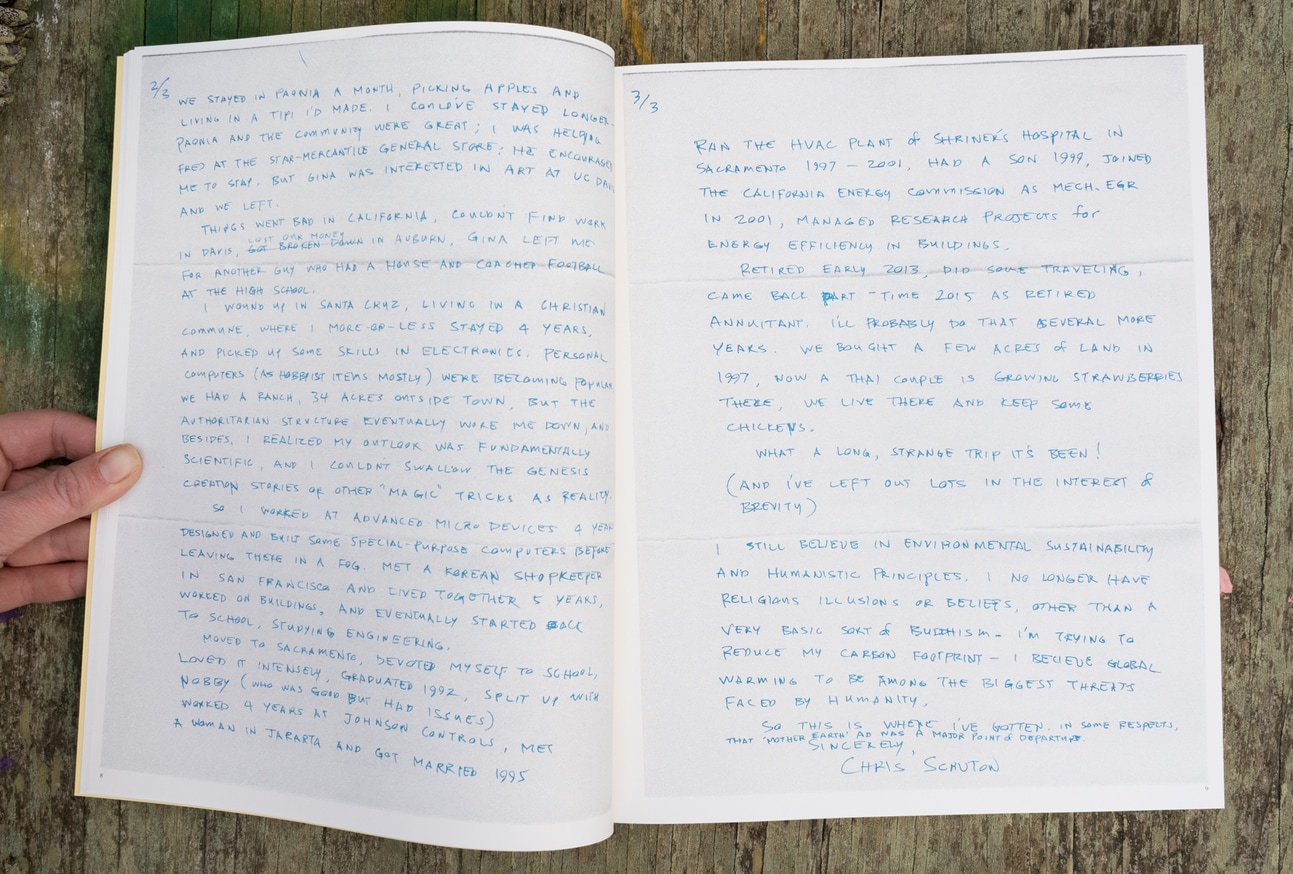 2/3
WE STAYED IN PAONIA A MONTH, PICKING APPLES AND
LIVING IN A TIPI I'D MADE. I COULD'VE STAYED LONGER.
PAONIA AND THE COMMUNITY WERE GREAT; I WAS HELPING
FRED AT THE STAR-MERCANTILE GENERAL STORE; HE ENCOURAGED
ME TO STAY. BUT GINA WAS INTERESTED IN ART AT UC DAVIS
AND WE LEFT.
THINGS WENT BAD IN CALIFORNIA, COULDN'T FIND WORK
LOST OUR MONEY
IN DAVIS, GOT BROKEN DOWN IN AUBURN, GINA LEFT ME
FOR ANOTHER GUY WHO HAD A HOUSE AND COACHED FOOTBALL
AT THE HIGH SCHOOL.
I WOUND UP IN SANTA CRUZ, LIVING IN A CHRISTIAN
COMMUNE, WHERE I MORE-OR-LESS STAYED 4 YEARS,
AND PICKED UP SOME SKILLS IN ELECTRONICS. PERSONAL
COMPUTERS (AS HOBBYIST ITEMS MOSTLY) WERE BECOMING POPULAR
WE HAD A RANCH, 34 ACRES OUTSIDE TOWN, BUT THE
AUTHORITARIAN STRUCTURE EVENTUALLY WORE ME DOWN, AND
BESIDES, I REALIZED MY OUTLOOK WAS FUNDAMENTALLY
SCIENTIFIC, AND I COULDN'T SWALLOW THE GENESIS
CREATION STORIES OR OTHER "MAGIC" TRICKS AS REALITY.
SO I WORKED AT ADVANCED MICRO DEVICES 4 YEARS
DESIGNED AND BUILT SOME SPECIAL-PURPOSE COMPUTERS BEFORE
LEAVING THERE IN A FOG. MET A KOREAN SHOPKEEPER
IN SAN FRANCISCO AND LIVED TOGETHER 5 YEARS,
WORKED ON BUILDINGS, AND EVENTUALLY STARTED BACK
TO SCHOOL, STUDYING ENGINEERING.
MOVED TO SACRAMENTO, DEVOTED MYSELF TO SCHOOL,
LOVED IT INTENSELY, GRADUATED 1992, SPLIT UP WITH
NOBBY (WHO WAS GOOD BUT HAD ISSUES)
WORKED 4 YEARS AT JOHNSON CONTROLS, MET
A WOMAN IN JAKARTA AND GOT MARRIED 1995
8
3/3
RAN THE HVAC PLANT of SHRINER'S HOSPITAL IN
SACRAMENTO 1997 – 2001, HAD A SON 1999, JOINED
THE CALIFORNIA ENERGY COMMISSION AS MECH. EGR
IN 2001, MANAGED RESEARCH PROJECTS for
ENERGY EFFICIENCY IN BUILDINGS.
RETIRED EARLY 2013, DID SOME TRAVELING,
CAME BACK PART-TIME 2015 AS RETIRED
ANNUITANT. I'LL PROBABLY DO THAT SEVERAL MORE
YEARS. WE BOUGHT A FEW ACRES of LAND IN
1997, NOW A THAI COUPLE IS GROWING STRAWBERRIES
THERE, WE LIVE THERE AND KEEP SOME
CHICKENS.
WHAT A LONG, STRANGE TRIP IT'S BEEN!
(AND I'VE LEFT OUT LOTS IN THE INTEREST of
BREVITY)
I STILL BELIEVE IN ENVIRONMENTAL SUSTAINABILITY
AND HUMANISTIC PRINCIPLES. I NO LONGER HAVE
RELIGIOUS ILLUSIONS OR BELIEFS, OTHER THAN A
VERY BASIC SORT of BUDDHISM – I'M TRYING TO
REDUCE MY CARBON FOOTPRINT – I BELIEVE GLOBAL
WARMING TO BE AMONG THE BIGGEST THREATS
FACED BY HUMANITY.
SO THIS IS WHERE I'VE GOTTEN. IN SOME RESPECTS,
THAT 'MOTHER EARTH' AD WAS A MAJOR POINT of DEPARTURE.
SINCERELY,
CHRIS SCRUTON
9